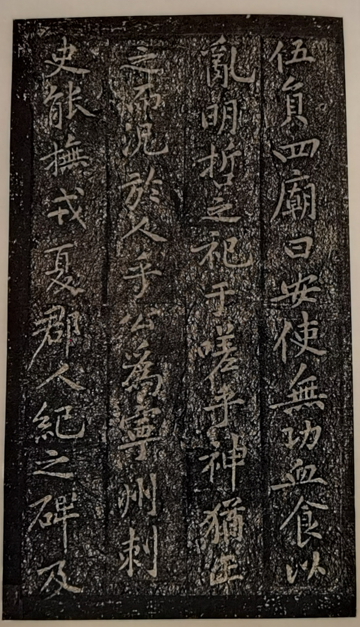 伍員四廟曰安使無功血食以
亂明哲之祀于嗟乎神猶正
之而況於人乎公為寧州刺
史能撫戎夏郡人紀之碑及